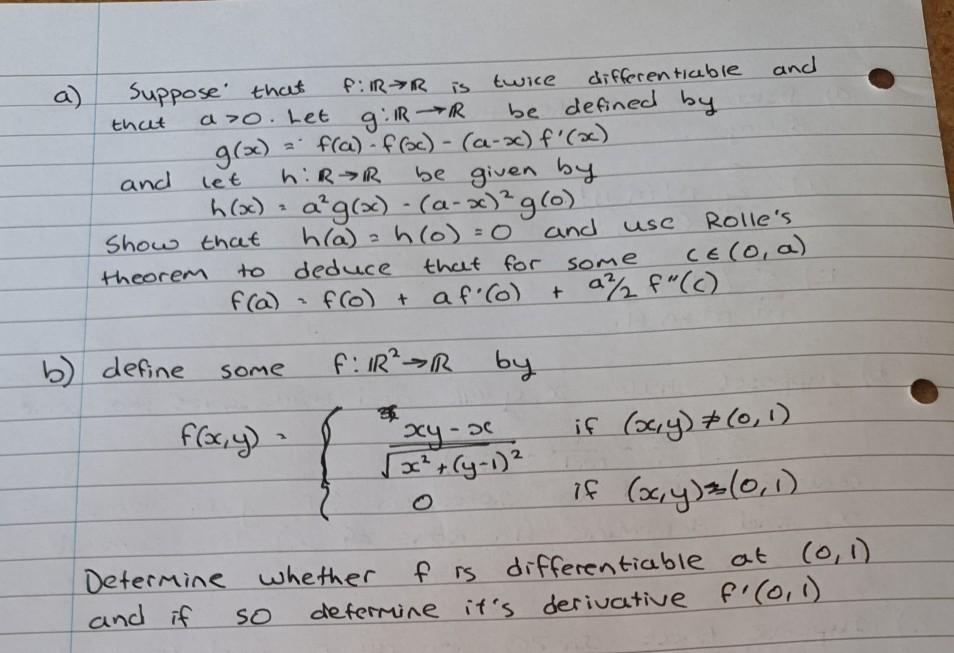 a) Suppose that f: ℝ→ℝ is twice differentiable and
that a>0. Let g: ℝ→ℝ be defined by
g(x) = f(a) - f(x) - (a-x) f'(x)
and let h: ℝ→ℝ be given by
h(x) = a²g(x) - (a-x)² g(0)
Show that h(a) = h(0) = 0 and use Rolle's
theorem to deduce that for some c ∈ (0, a)
f(a) = f(0) + a f'(0) + a²/2 f''(c)
b) define some f: ℝ²→ℝ by
f(x,y) = { xy - x / √x² + (y-1)² if (x,y) ≠ (0,1)
0 if (x,y) = (0,1)
Determine whether f is differentiable at (0,1)
and if so determine it's derivative f'(0,1)